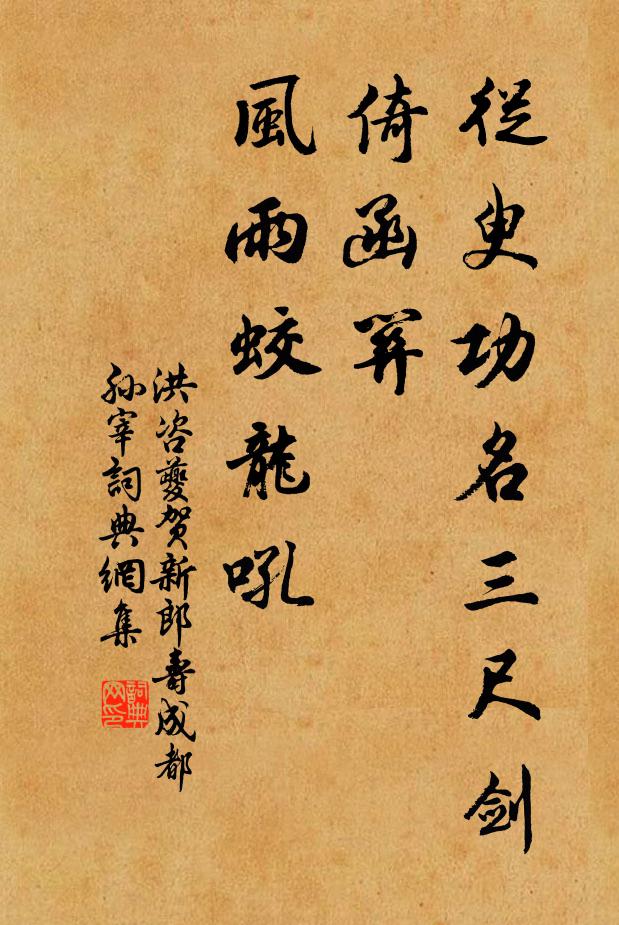 從臾功名三尺劍
倚函关
風雨蛟龍吼
洪咨夔贺新郎壽成都
孫宰詞典網集
詞典网印